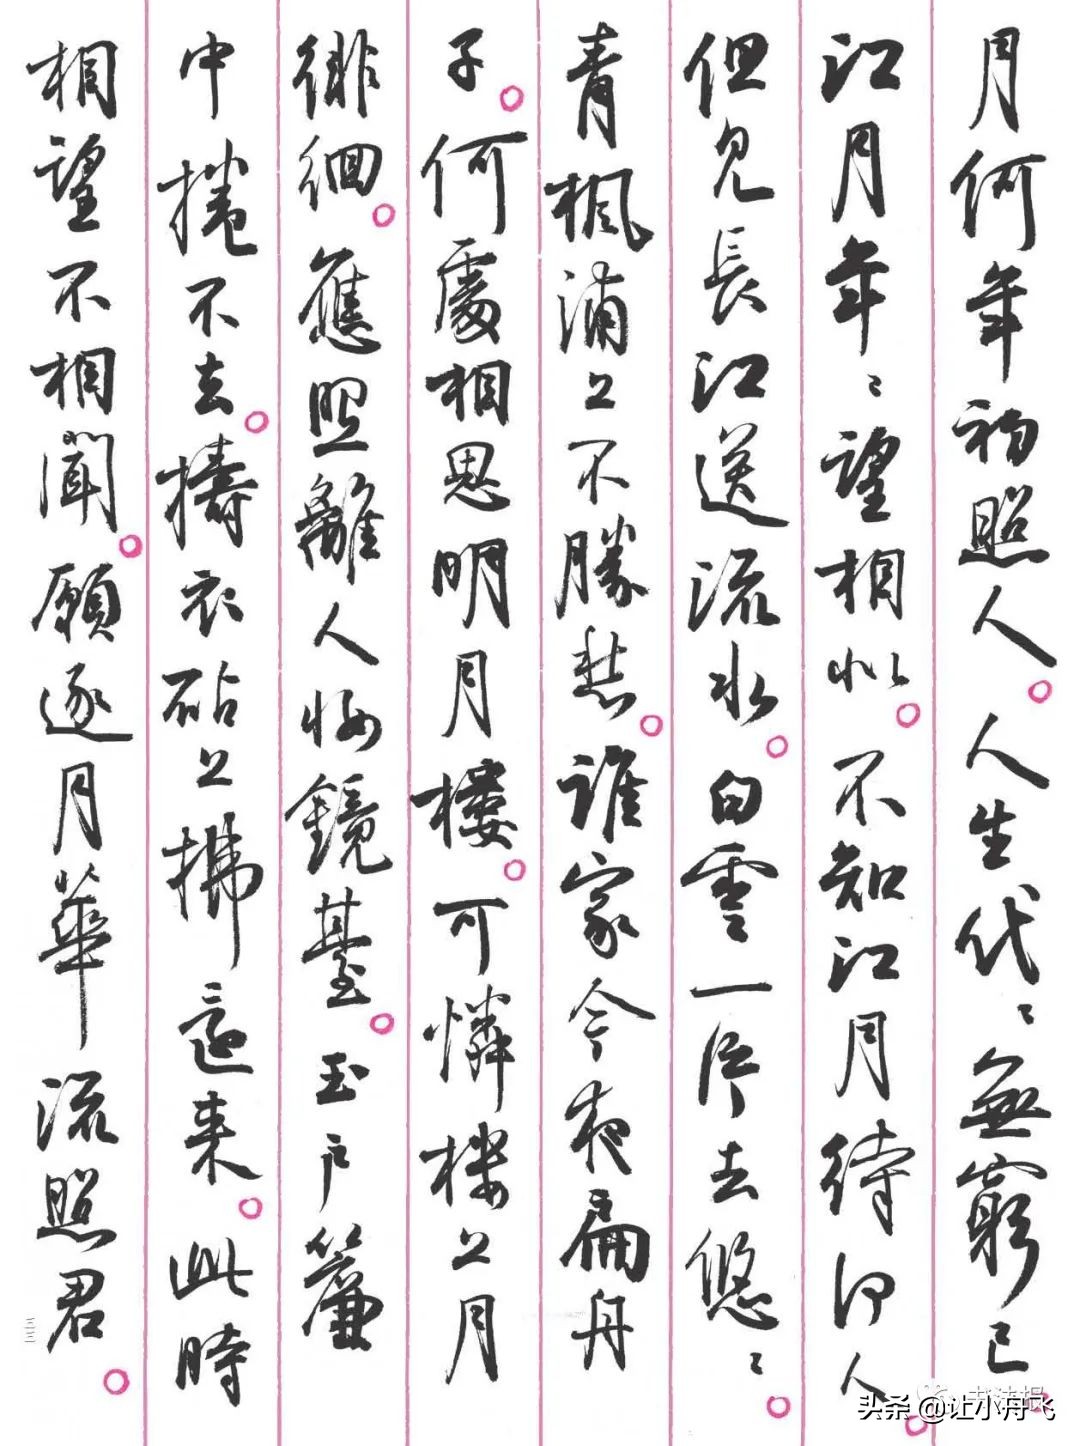 月何年初照人。人生代〻無窮已。
江月年〻望相似。不知江月待何人。
但見長江送流水。白雲一片去悠〻。
青楓浦上不勝愁。誰家今夜扁舟
子。何處相思明月樓。可憐樓上月
徘徊。應照離人妝鏡臺。玉戶簾
中捲不去。擣衣砧上拂還來。此時
相望不相聞。願逐月華流照君。
书法报
头条 @让小舟飞